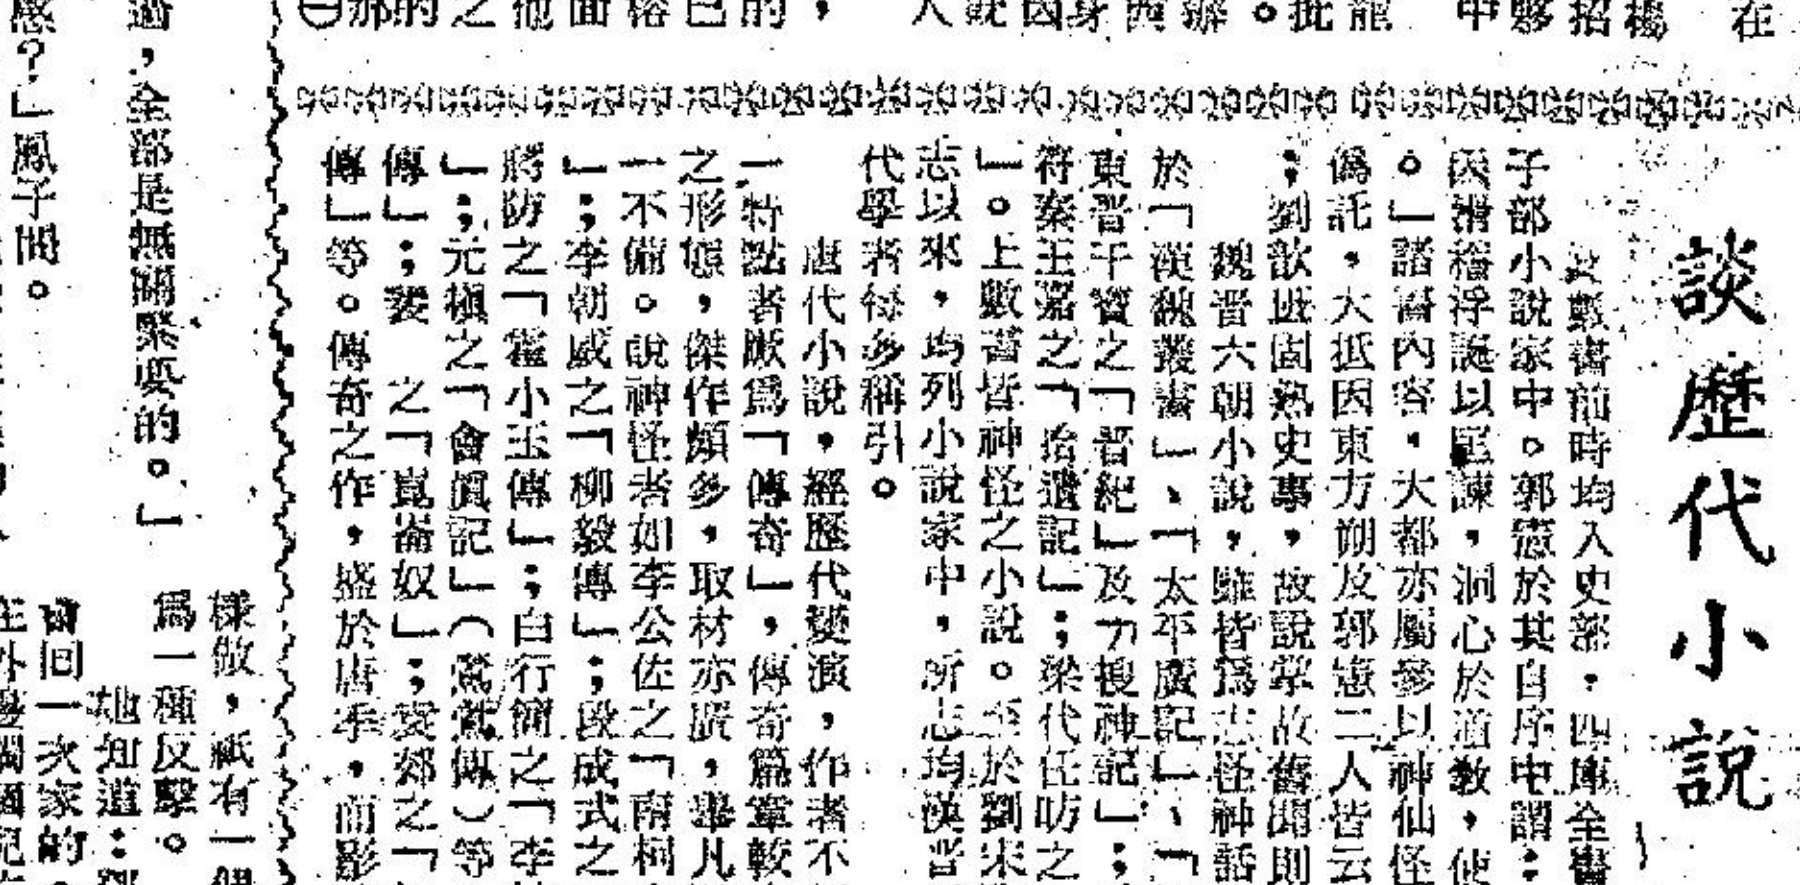 談歷代小說
此數書前時均入史部，四庫全書
子部小說家中。郭憲於其自序中謂：
因滑稽浮誕以匡諫，洞心於道教，使
。」諸書內容，大都亦屬參以神仙怪
偽託，大抵因東方朔及郭憲二人皆云
；劉歆班固熟史事，故說掌故舊聞則
魏晉六朝小說，雖皆爲志怪神話
於「漢魏叢書」、「太平廣記」、「
東晉干寶之「晉紀」及「搜神記」；
符秦王嘉之「拾遺記」；梁代任昉之
」。上數書皆神怪之小說。至於劉宋
志以來，均列小說家中，所志均漢晉
代學者每多稱引。
唐代小說，經歷代變演，作者不
一特點者厥爲「傳奇」，傳奇篇章較
之形態，傑作頗多，取材亦廣，舉凡
一不備。說神怪者如李公佐之「南柯
」；李朝威之「柳毅傳」；段成式之
蔣防之「霍小玉傳」；白行簡之「李
」；元稹之「會眞記」（鶯鶯傳）等
傳」；裴　之「崑崙奴」；袁郊之「
傳」等。傳奇之作，盛於唐季，而影
在
楊
招
夥
中
龍
批。
辦
西
身
因
就
人
，
的
已
榕
面
他
之
的
那
過，全部是無關緊要的。」
？」鳳子問。
樣做，祇有一個
爲一種反擊。
她知道：
回一次家的